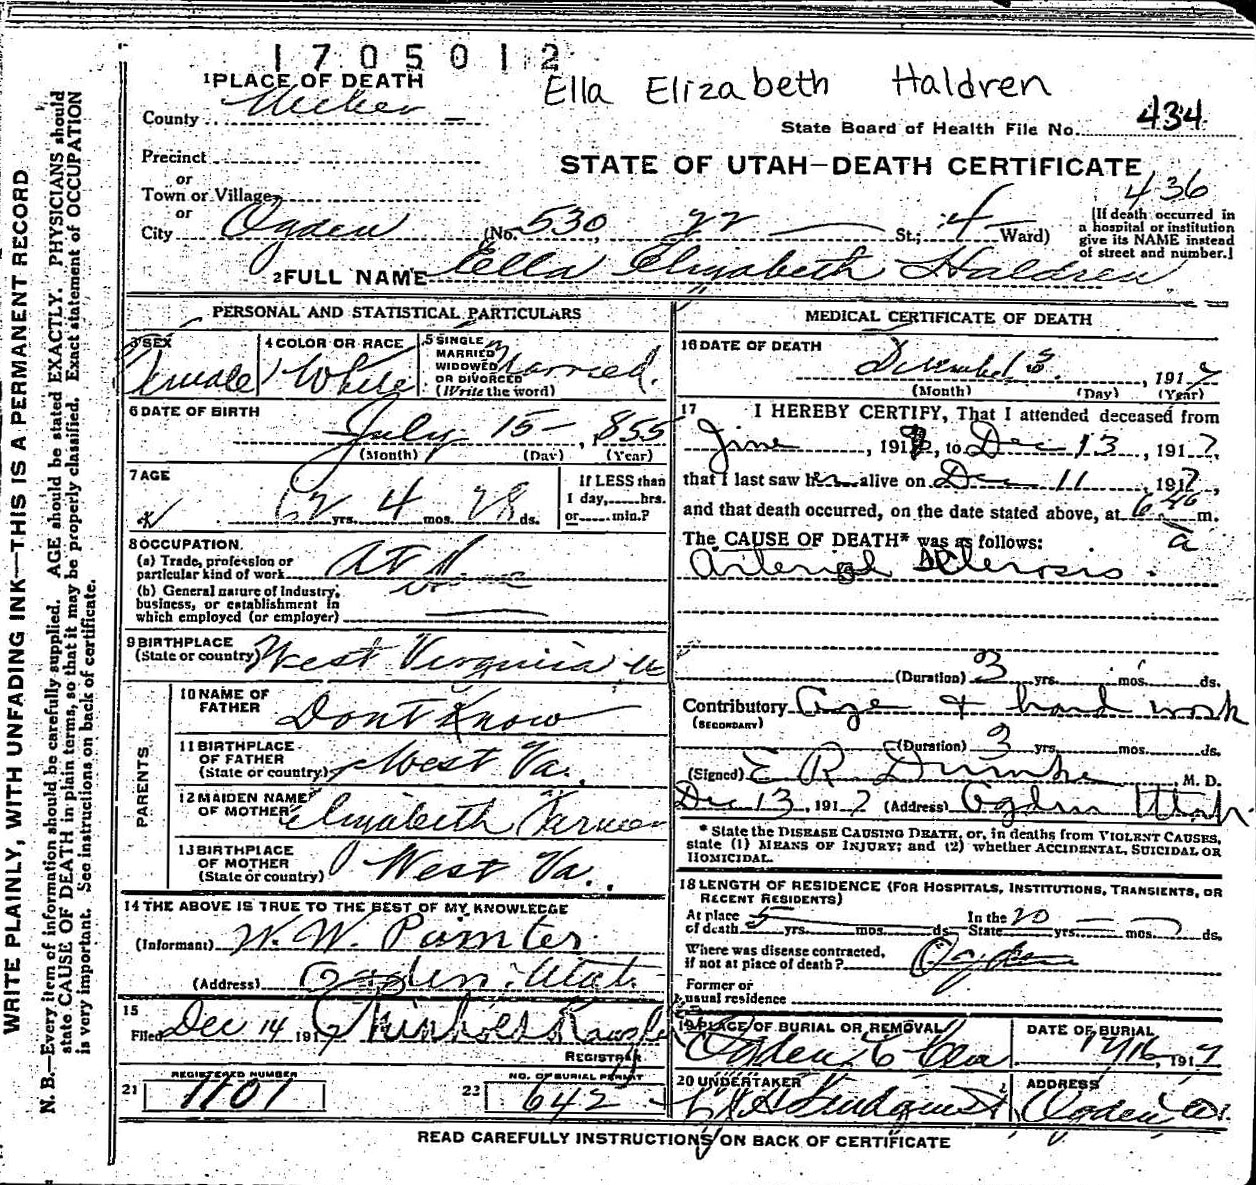 1705012
Ella Elizabeth Haldren
1 PLACE OF DEATH
County Weber
State Board of Health File No. 434
Precinct
STATE OF UTAH—DEATH CERTIFICATE
or
436
Town or Village
or
City Ogden (No. 530, 22 St.; 4 Ward)
[If death occurred in
a hospital or institution
give its NAME instead
of street and number.]
2 FULL NAME Ella Elizabeth Haldren
PERSONAL AND STATISTICAL PARTICULARS
3 SEX Female
4 COLOR OR RACE White
5 SINGLE
MARRIED
WIDOWED
OR DIVORCED
(Write the word) Married.
6 DATE OF BIRTH
July 15 —, 855
(Month) (Day) (Year)
7 AGE
62 yrs. 4 mos. 28 ds.
If LESS than
1 day, hrs.
or min.?
8 OCCUPATION
(a) Trade, profession or
particular kind of work At
(b) General nature of Industry,
business, or establishment in
which employed (or employer)
9 BIRTHPLACE
(State or country) West Virginia
PARENTS
10 NAME OF
FATHER Dont Know
11 BIRTHPLACE
OF FATHER
(State or country) West Va.
12 MAIDEN NAME
OF MOTHER Elizabeth
13 BIRTHPLACE
OF MOTHER
(State or country) West Va.
14 THE ABOVE IS TRUE TO THE BEST OF MY KNOWLEDGE
(Informant) W. W. Painter
(Address) Ogden, Utah.
15
Filed Dec 14 1917
REGISTRAR
21 REGISTERED NUMBER
1101
22 NO. OF BURIAL PERMIT
642
MEDICAL CERTIFICATE OF DEATH
16 DATE OF DEATH
December 13, 1917
(Month) (Day) (Year)
17 I HEREBY CERTIFY, That I attended deceased from
June, 191, to Dec 13, 1917,
that I last saw her alive on Dec 11, 1917,
and that death occurred, on the date stated above, at 6 40 a m.
The CAUSE OF DEATH* was as follows:
Arterial Sclerosis.
(Duration) 3 yrs. mos. ds.
Contributory Age & hard work
(SECONDARY)
(Duration) 3 yrs. mos. ds.
(Signed) E R Dumke, M. D.
Dec 13, 1917 (Address) Ogden Utah
* State the DISEASE CAUSING DEATH, or, in deaths from VIOLENT CAUSES,
state (1) MEANS OF INJURY; and (2) whether ACCIDENTAL, SUICIDAL OR
HOMICIDAL.
18 LENGTH OF RESIDENCE (FOR HOSPITALS, INSTITUTIONS, TRANSIENTS, OR
RECENT RESIDENTS)
At place
of death 5 yrs. mos. ds.
In the
State 20 yrs. mos. ds.
Where was disease contracted,
if not at place of death? Ogden
Former or
usual residence
19 PLACE OF BURIAL OR REMOVAL
Ogden
DATE OF BURIAL
12/16, 1917
20 UNDERTAKER
Lindquist
ADDRESS
Ogden
READ CAREFULLY INSTRUCTIONS ON BACK OF CERTIFICATE
WRITE PLAINLY, WITH UNFADING INK—THIS IS A PERMANENT RECORD
N. B.—Every item of information should be carefully supplied. AGE should be stated EXACTLY. PHYSICIANS should
state CAUSE OF DEATH in plain terms, so that it may be properly classified. Exact statement of OCCUPATION
is very important. See instructions on back of certificate.